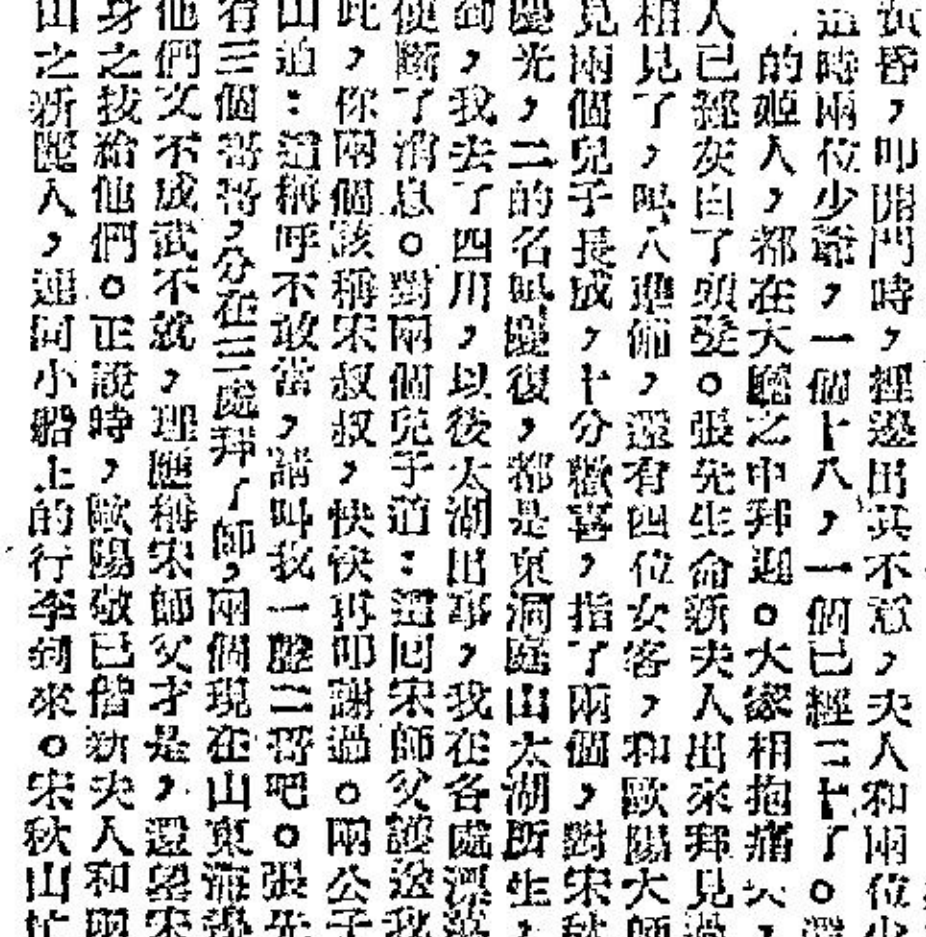 黃昏，叩開門時，裡邊出其不意，夫人和兩位少
這時兩位少爺，一個十八，一個已經二十了。還
的姬人，都在大廳之中拜迎。大家相抱痛哭，
人已經灰白了頭髮。張先生命新夫人出來拜見過
相見了，歐八進師，還有四位女客，和歐陽大師
見兩個兒子長成，十分歡喜，指了兩個，對宋秋
慶光，二的名叫慶復，都是東洞庭山太湖所生，
到，我去了四川，以後太湖出事，我在各處漂流
便斷了消息。對兩個兒子道：還回宋師父護送我
此，你兩個該稱宋叔叔，快快再叩謝過。兩公子
山道：這稱呼不敢當，請叫我一聲二哥吧。張先
有三個哥哥，分在三處拜了師，兩個現在山東海邊
他們文不成武不就，理應稱宋師父才是，還望宋
身之技給他們。正說時，歐陽敬已偕新夫人和兩
山之新麗人，連同小船上的行李到來。宋秋山忙